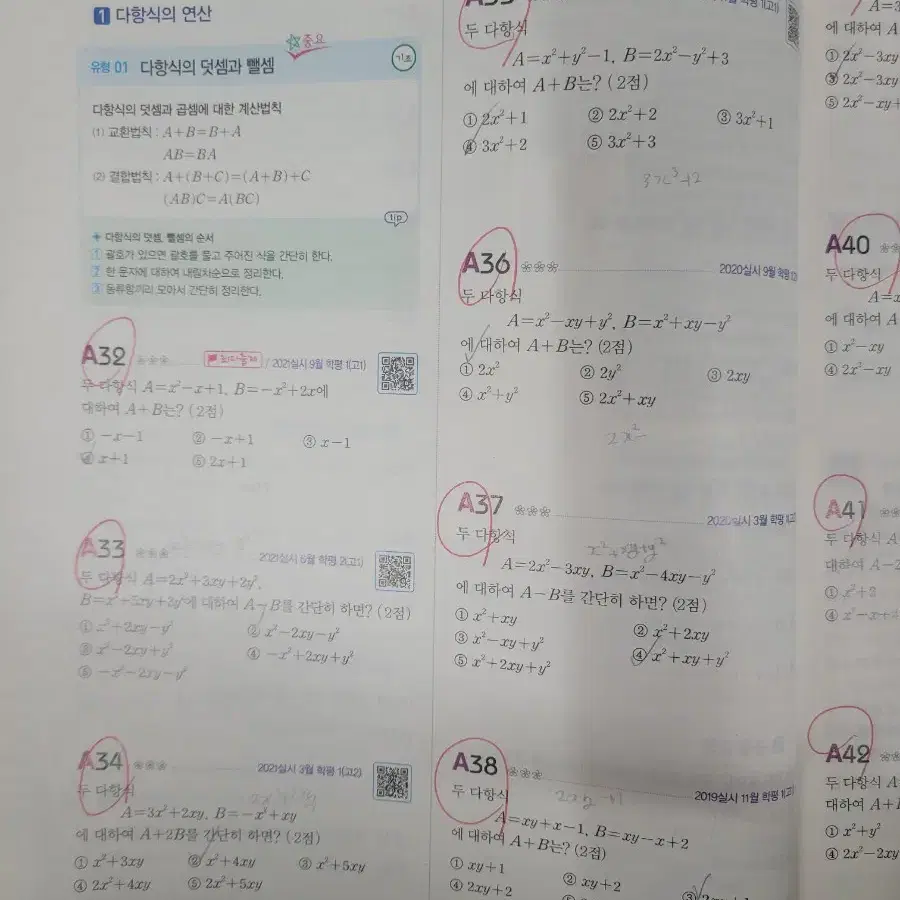 1 다항식의 연산
중요
유형 01 다항식의 덧셈과 뺄셈
기초
다항식의 덧셈과 곱셈에 대한 계산법칙
(1) 교환법칙 : A+B=B+A
AB=BA
(2) 결합법칙 : A+(B+C)=(A+B)+C
(AB)C=A(BC)
tip
다항식의 덧셈, 뺄셈의 순서
1 괄호가 있으면 괄호를 풀고 주어진 식을 간단히 한다.
2 한 문자에 대하여 내림차순으로 정리한다.
3 동류항끼리 모아서 간단히 정리한다.
A32
2021실시 9월 학평 1(고1)
두 다항식 A=x²-x+1, B=-x²+2x에
대하여 A+B는? (2점)
① -x-1 ② -x+1 ③ x-1
④ x+1 ⑤ 2x+1
A33
2021실시 6월 학평 2(고1)
두 다항식 A=2x²+3xy+2y²,
B=x²+5xy+3y²에 대하여 A-B를 간단히 하면? (2점)
① x²+2xy-y² ② x²-2xy-y²
③ x²-2xy+y² ④ -x²+2xy+y²
⑤ -x²-2xy-y²
A34
2021실시 3월 학평 1(고2)
두 다항식
A=3x²+2xy, B=-x²+xy
에 대하여 A+2B를 간단히 하면? (2점)
① x²+3xy ② x²+4xy ③ x²+5xy
④ 2x²+4xy ⑤ 2x²+5xy
두 다항식
A=x²+y²-1, B=2x²-y²+3
에 대하여 A+B는? (2점)
① 2x²+1 ② 2x²+2 ③ 3x²+1
④ 3x²+2 ⑤ 3x²+3
A36
2020실시 9월 학평
두 다항식
A=x²-xy+y², B=x²+xy-y²
에 대하여 A+B는? (2점)
① 2x² ② 2y² ③ 2xy
④ x²+y² ⑤ 2x²+xy
2x²
A37
2020실시 3월 학평
두 다항식
A=2x²-3xy, B=x²-4xy-y²
에 대하여 A-B를 간단히 하면? (2점)
① x²+xy ② x²+2xy
③ x²-xy+y² ④ x²+xy+y²
⑤ x²+2xy+y²
A38
2019실시 11월 학평 1(고1)
두 다항식
A=xy+x-1, B=xy-x+2
에 대하여 A+B는? (2점)
① xy+1 ② xy+2
④ 2xy+2
에 대하여 A
① 2x²-3xy
③ 2x²-3xy
⑤ 2x²-xy+
A40
두 다항식
에 대하여 A
① x²-xy
④ 2x²-xy
A41
두 다항식 A
대하여 A-2
A42
두 다항식 A
대하여 A+
① x²+y²
④ 2x²-2xy